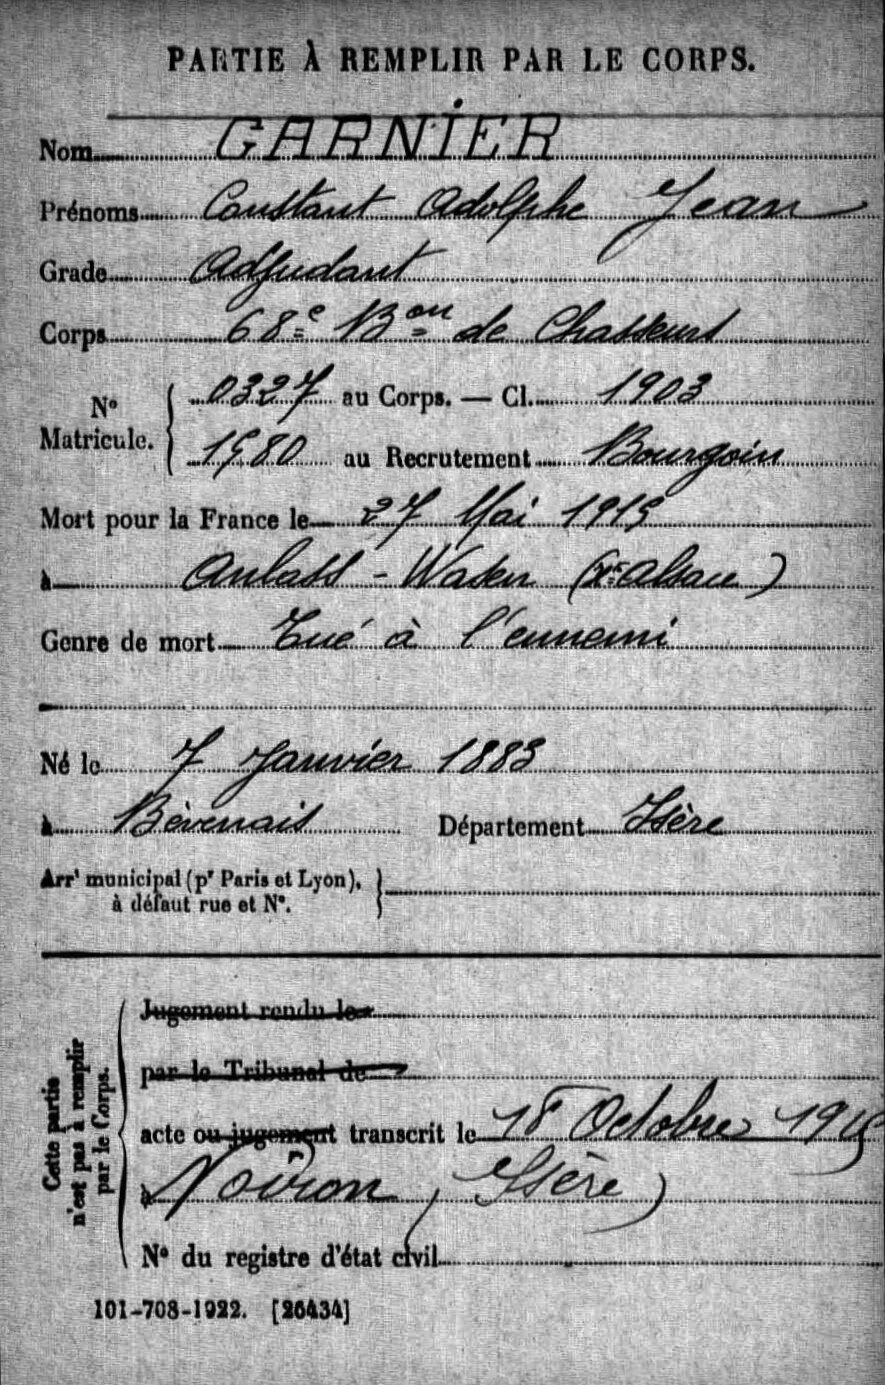 PARTIE À REMPLIR PAR LE CORPS.
Nom GARNIER
Prénoms Constant Adolphe Jean
Grade Adjudant
Corps 68e Bon de Chasseurs
No Matricule. { 0327 au Corps. — Cl. 1903
1580 au Recrutement Bourgoin
Mort pour la France le 27 Mai 1915
à Anlass-Wasen (Alsace)
Genre de mort Tué à l'ennemi
Né le 7 Janvier 1883
à Bévenais Département Isère
Arrt municipal (pr Paris et Lyon), à défaut rue et No. }
Cette partie n'est pas à remplir par le Corps.
Jugement rendu le
par le Tribunal de
acte ou jugement transcrit le 18 Octobre 1915
à Voiron (Isère)
No du registre d'état civil
101-708-1922. [26434]